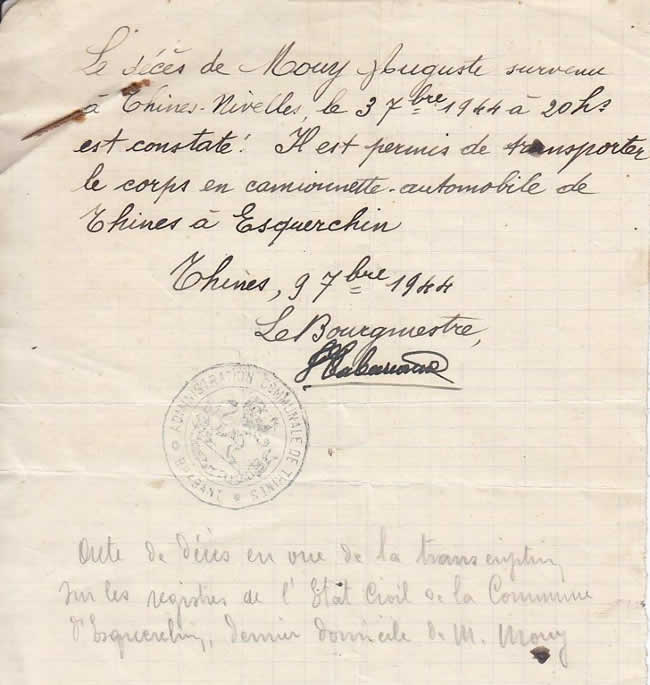 Le décès de Mouy Auguste survenu
à Thines-Nivelles, le 3 7bre 1944 à 20hs
est constaté. Il est permis de transporter
le corps en camionnette-automobile de
Thines à Esquerchin
Thines, 9 7bre 1944
Le Bourgmestre,
ADMINISTRATION COMMUNALE DE THINES * BRABANT *
Acte de décès en vue de la transcription
sur les registres de l'Etat Civil de la Commune
d'Esquerchin, dernier domicile de M. Mouy